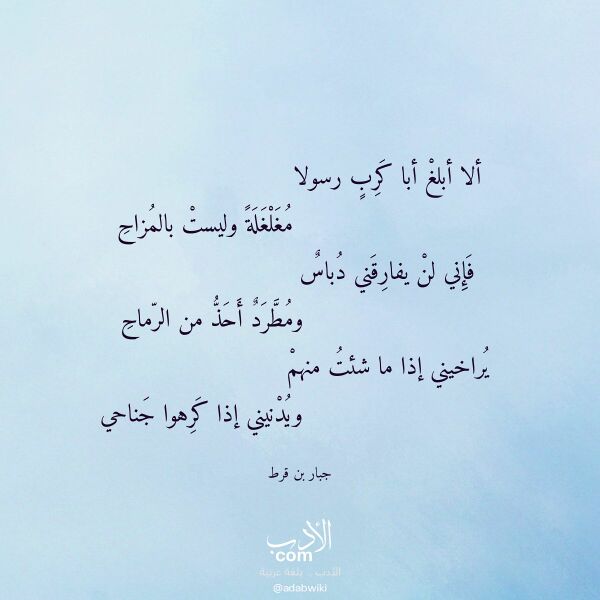 ألا أبلغْ أبا كَرِبٍ رسولا
مُغَلْغَلَةً وليستْ بالمُزاحِ
فَإِني لنْ يفارِقَني دُباسٌ
ومُطَّرَدٌ أَحَذُّ من الرّماحِ
يُراخيني إذا ما شئتُ منهمْ
ويُدْنيني إذا كَرِهوا جَناحي
جبار بن قرط
الأدب
com
الأدب .. بلغة عربية
@adabwiki